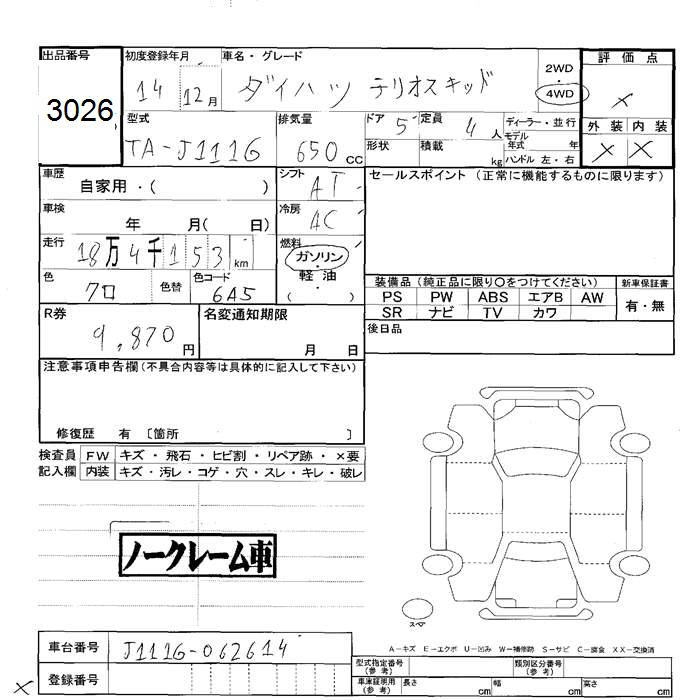 出品番号
3026
初度登録年月
14 12月
車名・グレード
ダイハツ テリオスキッド
2WD
・
4WD
評価点
×
外装 内装
× ×
型式
TA-J111G
排気量
650 CC
ドア 5
定員 4 人
形状
積載 kg
ディーラー・並行
モデル
年式 年
ハンドル 左・右
車歴
自家用・( )
シフト
AT
車検
年 月( 日)
冷房
AC
走行
18万4千153km
燃料
ガソリン
・
軽油
( )
色
クロ
色替
色コード
6A5
セールスポイント (正常に機能するものに限ります)
装備品 (純正品に限り○をつけてください)
PS PW ABS エアB AW
SR ナビ TV カワ
新車保証書
有・無
後日品
R券
9,870 円
名変通知期限
月 日
注意事項申告欄(不具合内容等は具体的に記入して下さい)
修復歴 有 〔箇所 〕
検査員
記入欄
FW キズ・飛石・ヒビ割・リペア跡・×要
内装 キズ・汚レ・コゲ・穴・スレ・キレ・破レ
ノークレーム車
スペア
A-キズ E-エクボ U-凹み W-補修跡 S-サビ C-腐食 XX-交換済
車台番号
J111G-062614
登録番号
×
型式指定番号
(参考)
類別区分番号
(参考)
車庫証明用
(参考)
長さ cm
幅 cm
高さ cm